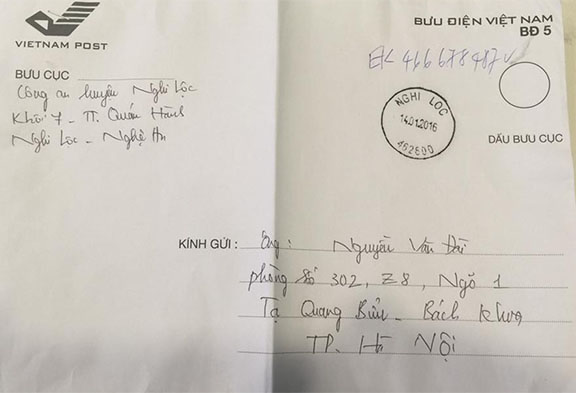 VIETNAM POST
BƯU ĐIỆN VIỆT NAM
BĐ 5
BƯU CỤC
Công an huyện Nghi Lộc
Khối 7 - TT. Quán Hành
Nghi Lộc - Nghệ An
EK 466 678 487 V
NGHI LỘC
14.01.2016
462600
DẤU BƯU CỤC
KÍNH GỬI : Ông : Nguyễn Văn Đài
phòng số 302, Z8, Ngõ 1
Tạ Quang Bửu - Bách Khoa
TP. Hà Nội